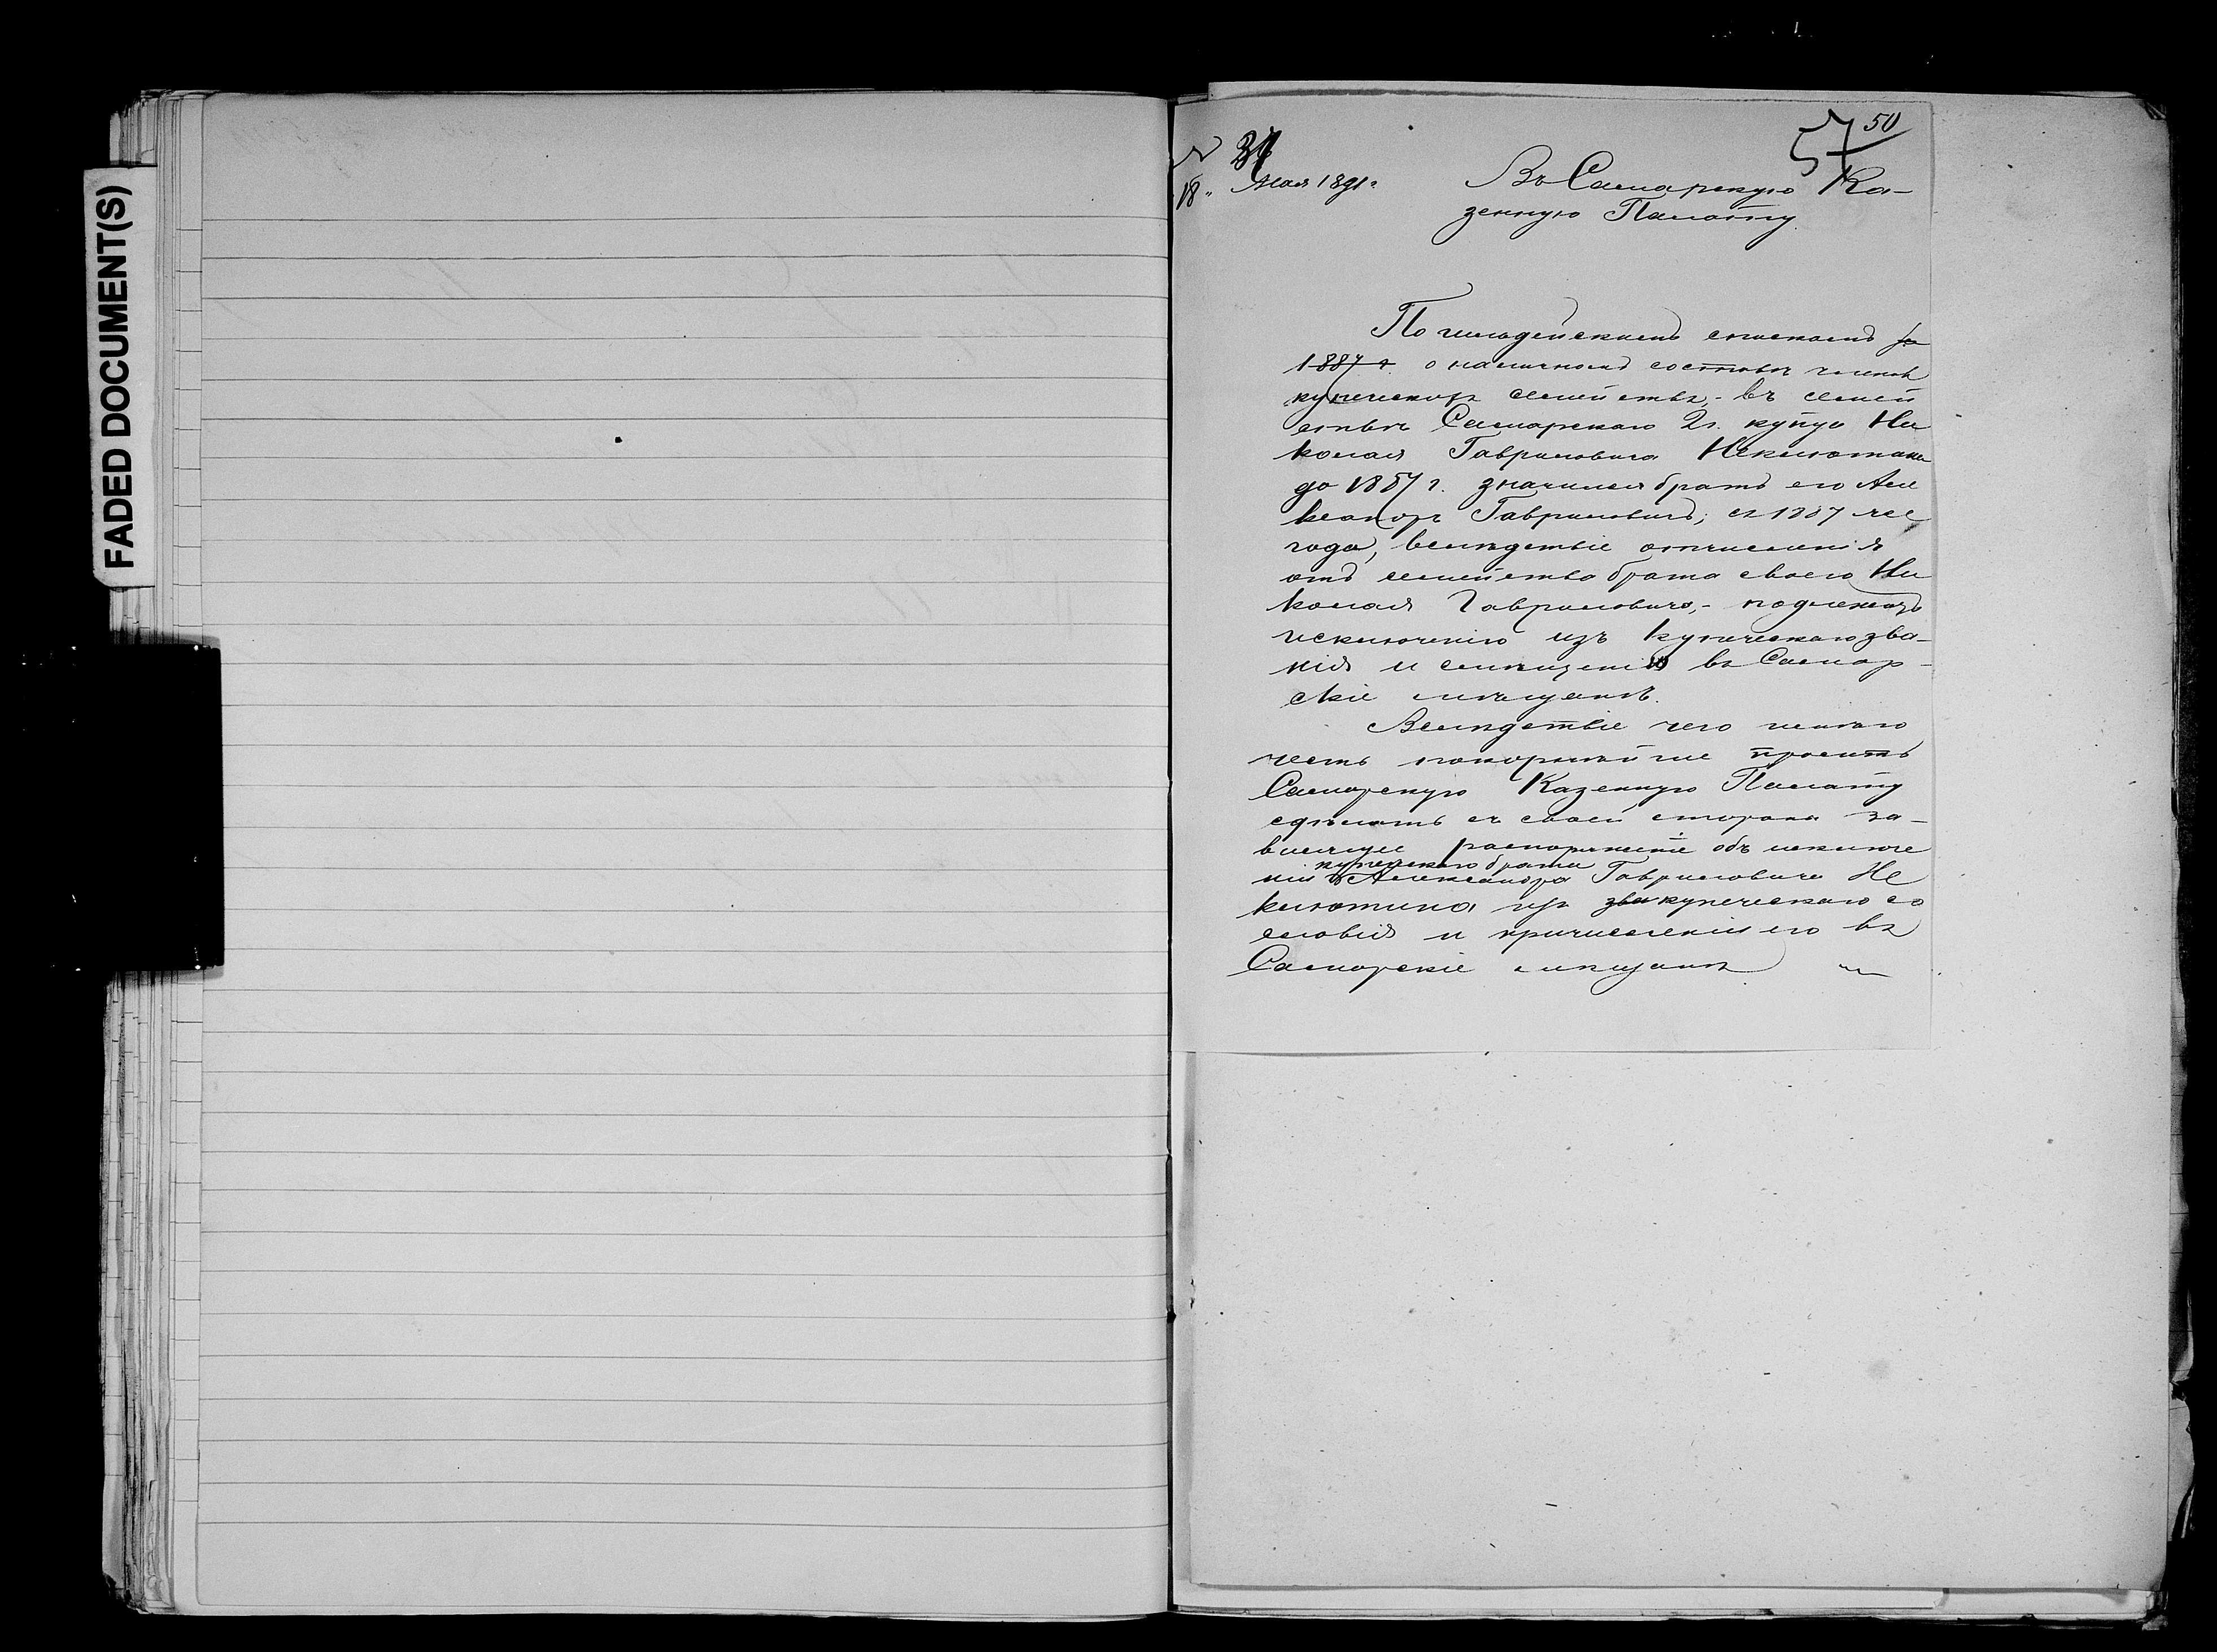 FADED DOCUMENT(S)
50
57
№ 37
18" Мая 1891 г.
Въ Самарскую Ка-
зенную Палату.
По гильдейскимъ спискамъ за
1887 г. о наличномъ составѣ членовъ
купеческихъ семействъ, - въ семей
ствѣ Самарскаго 2 г. купца Ни
колая Гавриловича Неклютина
до 1887 г. значился братъ его Але
ксандръ Гавриловичъ; съ 1887 же
года, вслѣдствіе отчисленія
отъ семейства брата своего Ни
колая Гавриловича, - подлежитъ
исключенію изъ купеческаго зва-
нія и въ Самар-
скіе мѣщане.
Вслѣдствіе чего имѣю
честь покорнѣйше просить
Самарскую Казенную Палату
сдѣлать съ своей стороны за-
висящее распоряженіе объ исключе
купеческаго брата
ніи Александра Гавриловича Не
клютина изъ зва купеческаго со
словія и причисленіи его въ
Самарскіе мѣщане